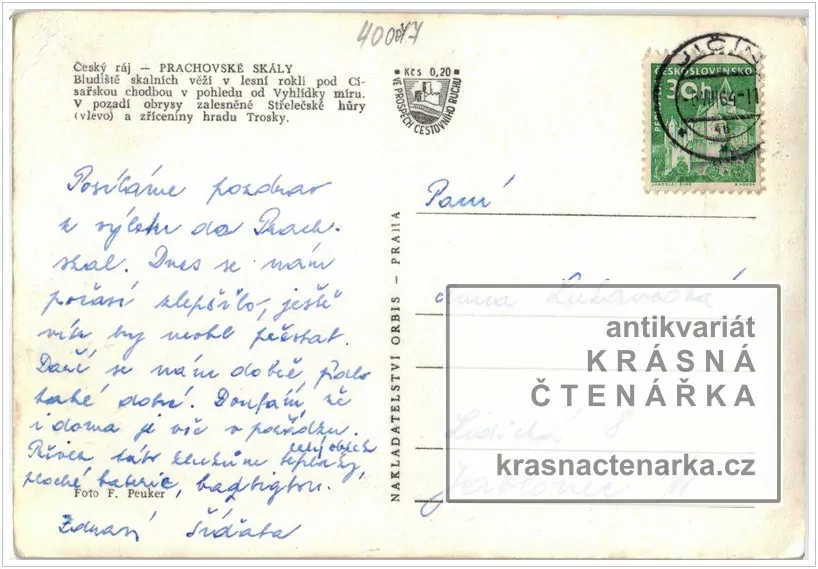 40047
Český ráj — PRACHOVSKÉ SKÁLY
Bludiště skalních věží v lesní rokli pod Cí-
sařskou chodbou v pohledu od Vyhlídky míru.
V pozadí obrysy zalesněné Střelečské hůry
(vlevo) a zříceniny hradu Trosky.
Kčs 0,20
VE PROSPĚCH CESTOVNÍHO RUCHU
JIČÍN
64-11
ČESKOSLOVENSKO
30h
Posíláme pozdrav
z výletu do Prach.
skal. Dnes se nám
počasí zlepšilo, ještě
vítr by mohl přestat.
Daří se nám dobře
také dobré. Doufám, že
i doma je vše v pořádku.
tepláky,
ploché baterie, badbigton.
Foto F. Peuker
Zdraví
NAKLADATELSTVÍ ORBIS — PRAHA
Paní
Anna
8
Jablonec
antikvariát
KRÁSNÁ
ČTENÁŘKA
krasnactenarka.cz